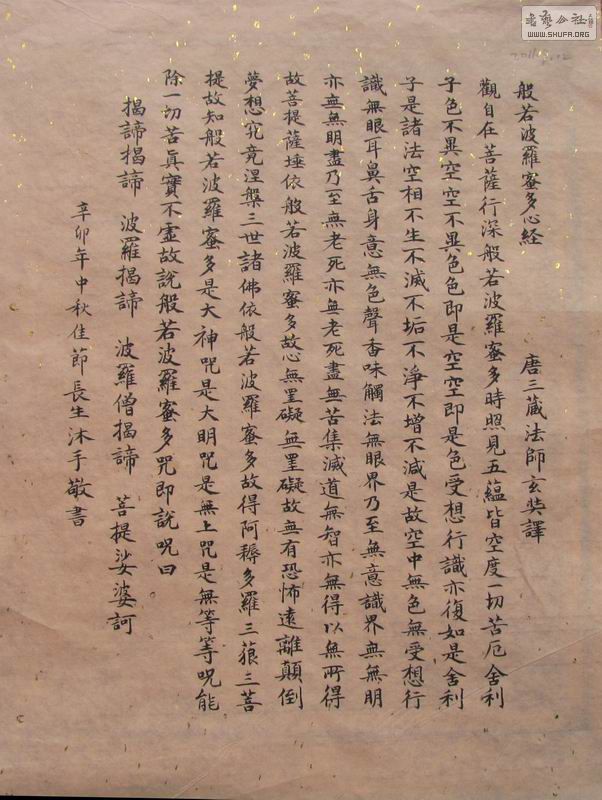 般若波羅蜜多心経
唐三蔵法師玄奘譯
觀自在菩薩行深般若波羅蜜多時照見五蘊皆空度一切苦厄舍利
子色不異空空不異色色即是空空即是色受想行識亦復如是舍利
子是諸法空相不生不滅不垢不淨不增不減是故空中無色無受想行
識無眼耳鼻舌身意無色聲香味觸法無眼界乃至無意識界無無明
亦無無明盡乃至無老死亦無老死盡無苦集滅道無智亦無得以無所得
故菩提薩埵依般若波羅蜜多故心無罣礙無罣礙故無有恐怖遠離顛倒
夢想究竟涅槃三世諸佛依般若波羅蜜多故得阿耨多羅三藐三菩
提故知般若波羅蜜多是大神咒是大明咒是無上咒是無等等呪能
除一切苦眞實不虛故說般若波羅蜜多咒即說呪曰
揭諦揭諦 波羅揭諦 波羅僧揭諦 菩提娑婆訶
辛卯年中秋佳節長生沐手敬書
書藝公社
WWW.SHUFA.ORG